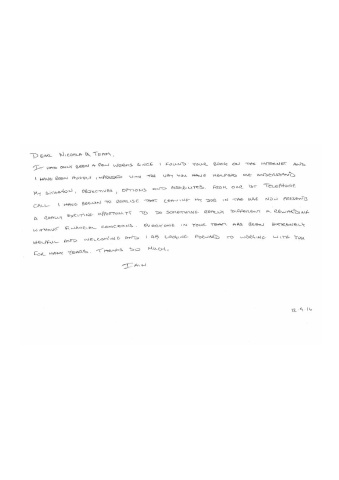 DEAR NICHOLA & TEAM,
IT HAS ONLY BEEN A FEW WEEKS SINCE I FOUND YOUR BOOK ON THE INTERNET AND
I HAVE BEEN IMPRESSED WITH THE WAY YOU HAVE HELPED ME UNDERSTAND
MY SITUATION, OBJECTIVES, OPTIONS AND FROM OUR 1ST TELEPHONE
CALL I HAVE BEGUN TO REALISE THAT LEAVING MY JOB IN THE UAE NOW PRESENTS
A REALLY EXCITING OPPORTUNITY TO DO SOMETHING REALLY DIFFERENT & REWARDING
WITHOUT FINANCIAL CONCERNS. EVERYONE IN YOUR TEAM HAS BEEN EXTREMELY
HELPFUL AND WELCOMING AND I AM LOOKING FORWARD TO WORKING WITH YOU
FOR MANY YEARS. THANKS SO MUCH.
IAIN
12.9.16